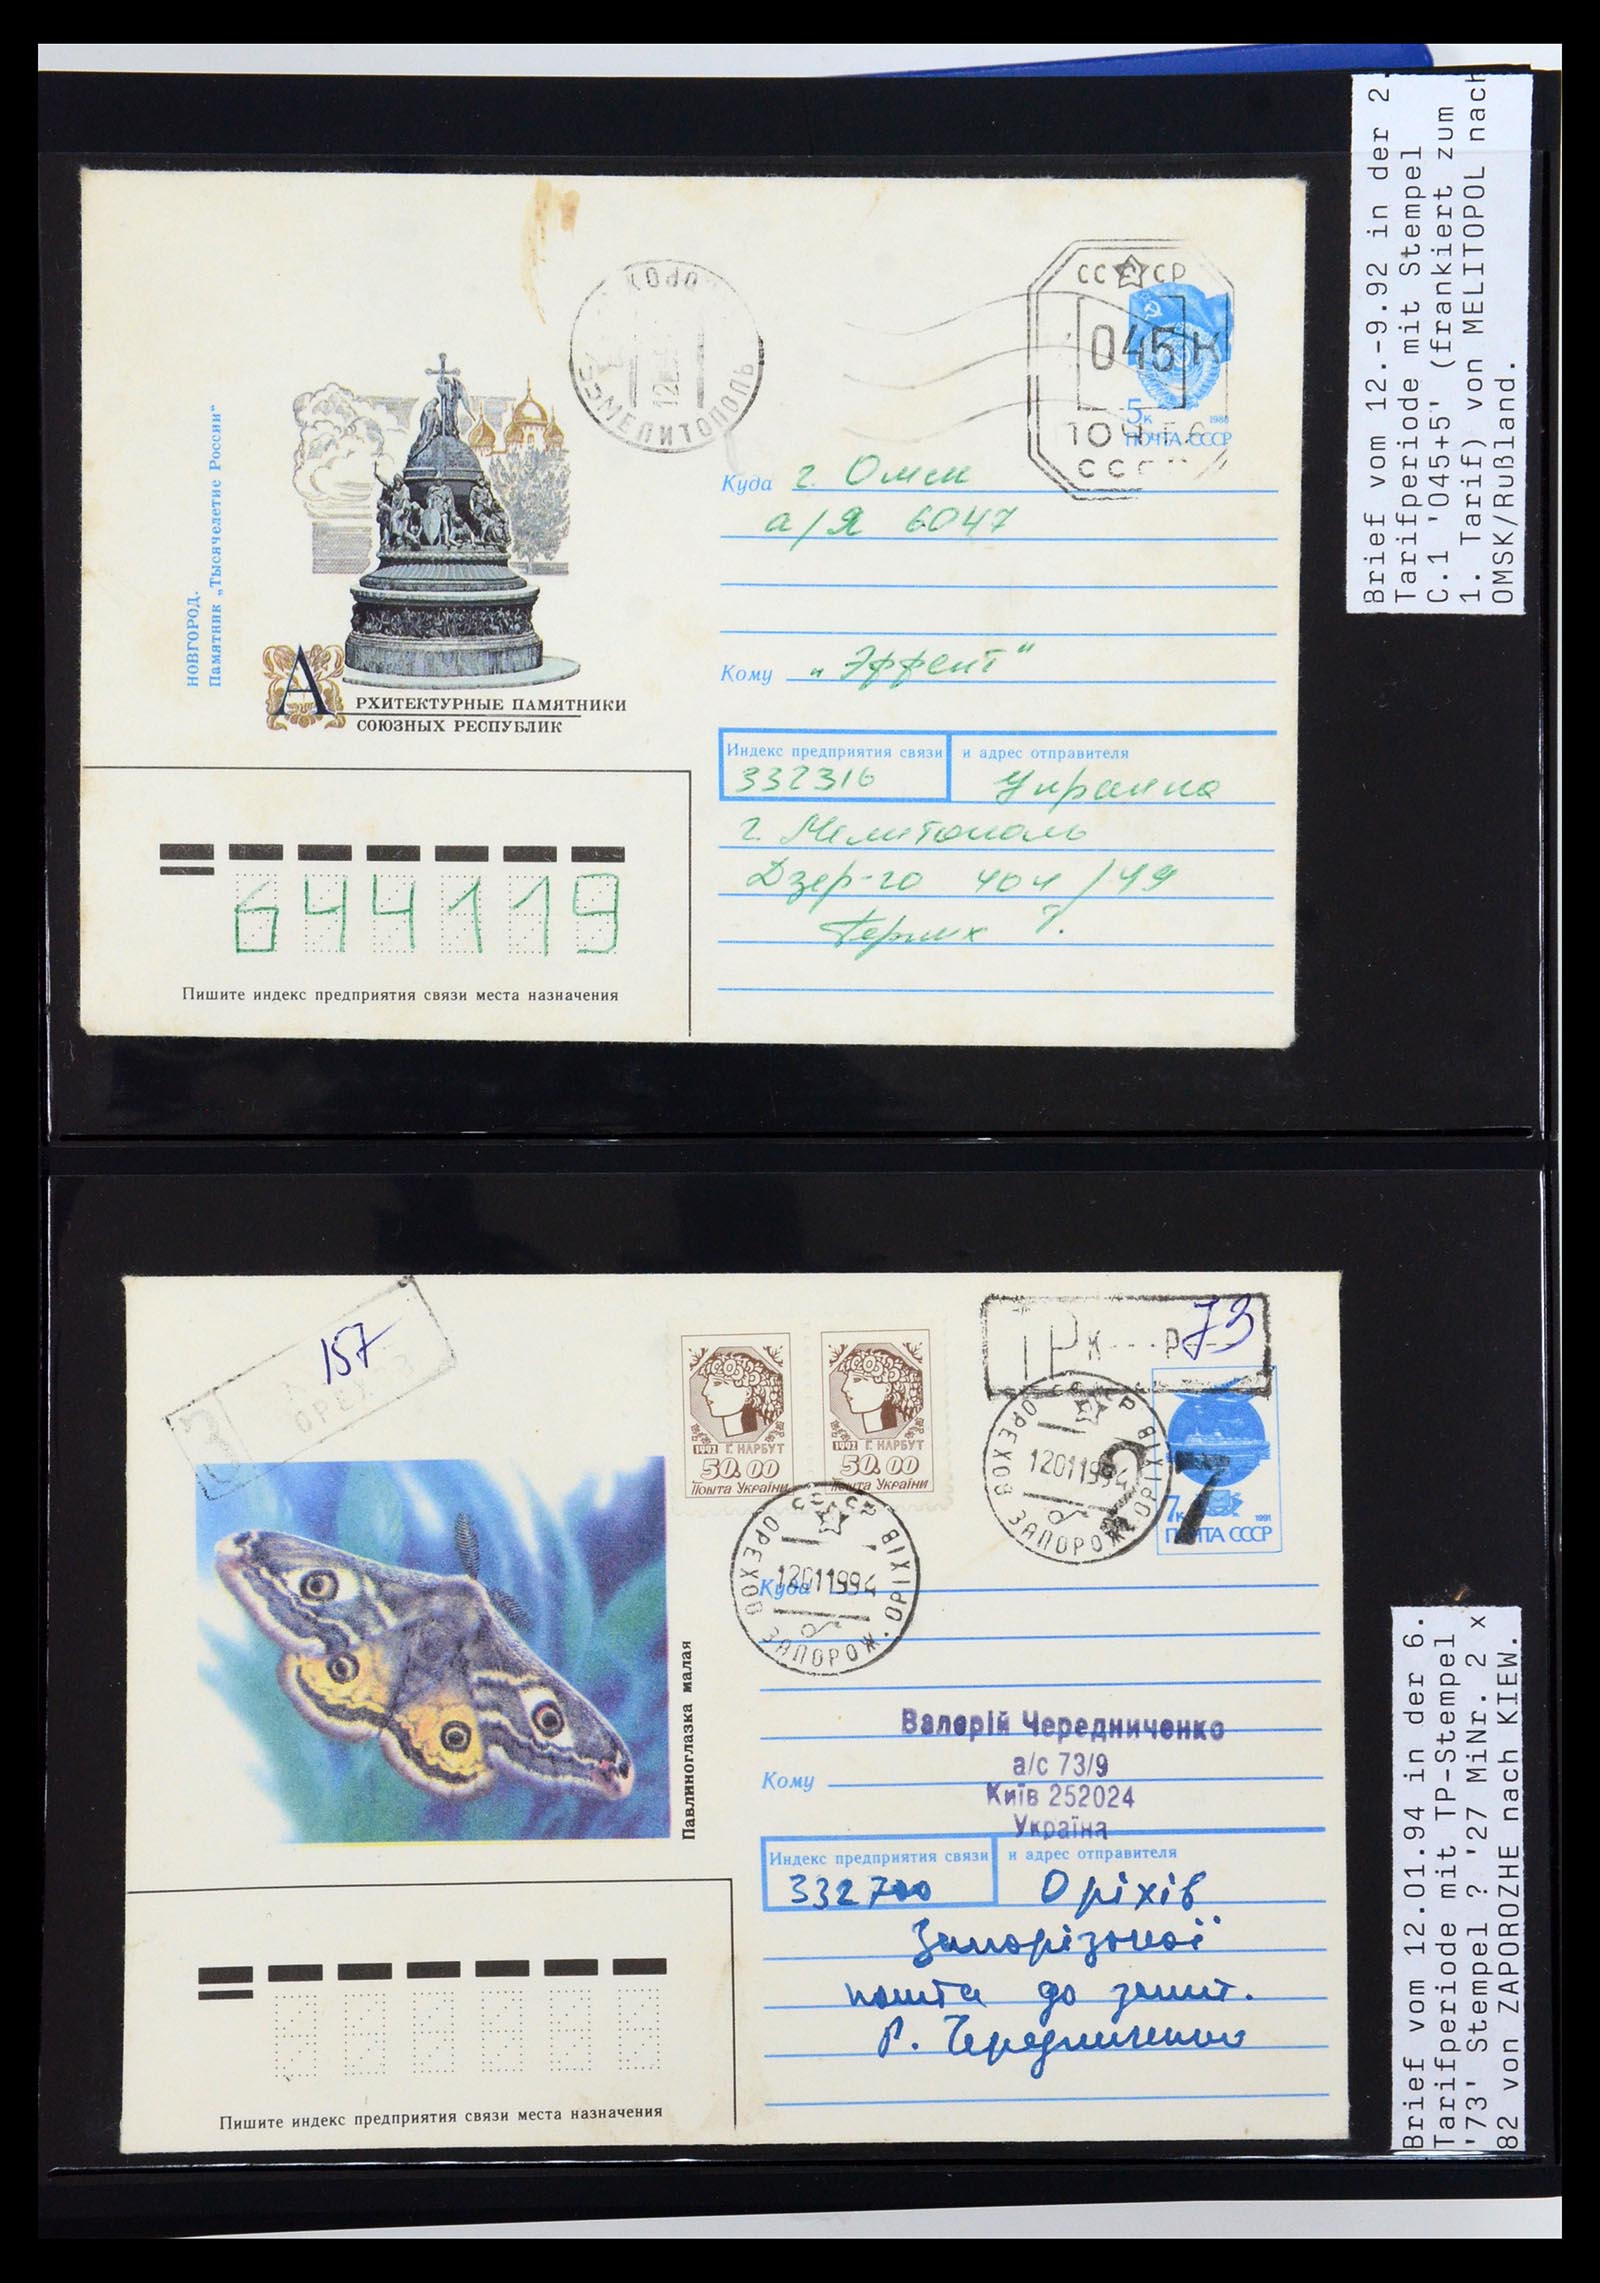 Brief vom 12.-9.92 in der 2.
Tarifperiode mit Stempel
C.1 '045+5' (frankiert zum
1. Tarif) von MELITOPOL nach
OMSK/Rußland.
НОВГОРОД.
Памятник „Тысячелетие России“
АРХИТЕКТУРНЫЕ ПАМЯТНИКИ
СОЮЗНЫХ РЕСПУБЛИК
МЕЛИТОПОЛЬ
СССР
045 К
5к 1988
ПОЧТА СССР
Куда г. Омск
а/я 6047
Кому „Эффект“
Индекс предприятия связи и адрес отправителя
332316 Украина
г. Мелитополь
Дзер-го 404/49
644119
Пишите индекс предприятия связи места назначения
157
ОРЕХ
1992 Г. НАРБУТ
50.00
Пошта України
1992 Г. НАРБУТ
50.00
Пошта України
ТР к---р--- 73
СССР ОРІХІВ ЗАПОРОЖ. ОРЕХОВ
12011994
СССР ОРІХІВ ЗАПОРОЖ. ОРЕХОВ
12011994
7к 1991
ПОЧТА СССР
Павлиноглазка малая
Куда
Валерій Чередниченко
а/с 73/9
Кому
Київ 252024
Україна
Индекс предприятия связи и адрес отправителя
332700 Оріхів
Запорізької
пошта до запит.
В. Чередниченко
Пишите индекс предприятия связи места назначения
Brief vom 12.01.94 in der 6.
Tarifperiode mit TP-Stempel
'73' Stempel ? '27 MiNr. 2 x
82 von ZAPOROZHE nach KIEW.